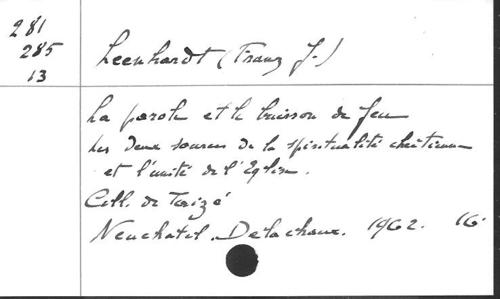 281
285
13
Leenhardt (Franz J.)
La parole et le buisson de feu
Les deux sources de la spiritualité chrétienne
et l'unité de l'Eglise.
Coll. de Taizé
Neuchatel. Delachaux. 1962. 16°